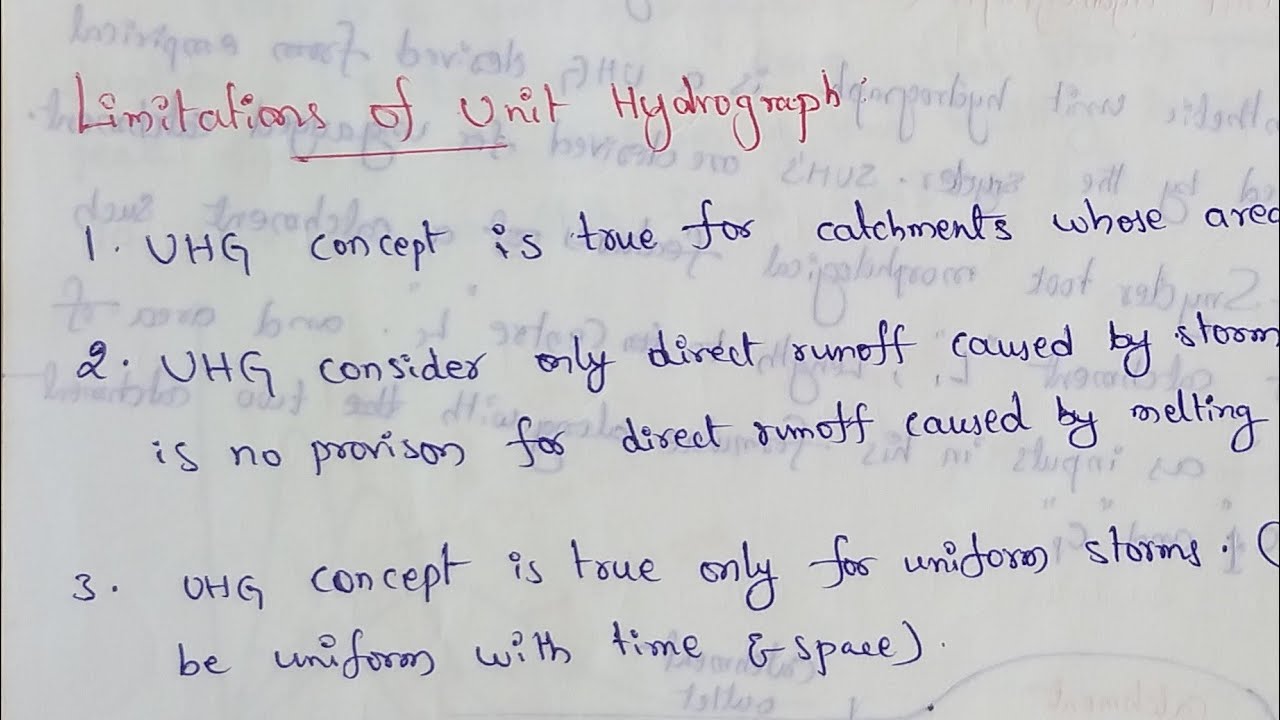 Limitations of Unit Hydrograph:
1. UHG concept is true for catchments whose area
2. UHG consider only direct runoff caused by storm
is no provison for direct runoff caused by melting
3. UHG concept is true only for uniform storms. (
be uniform with time & space).